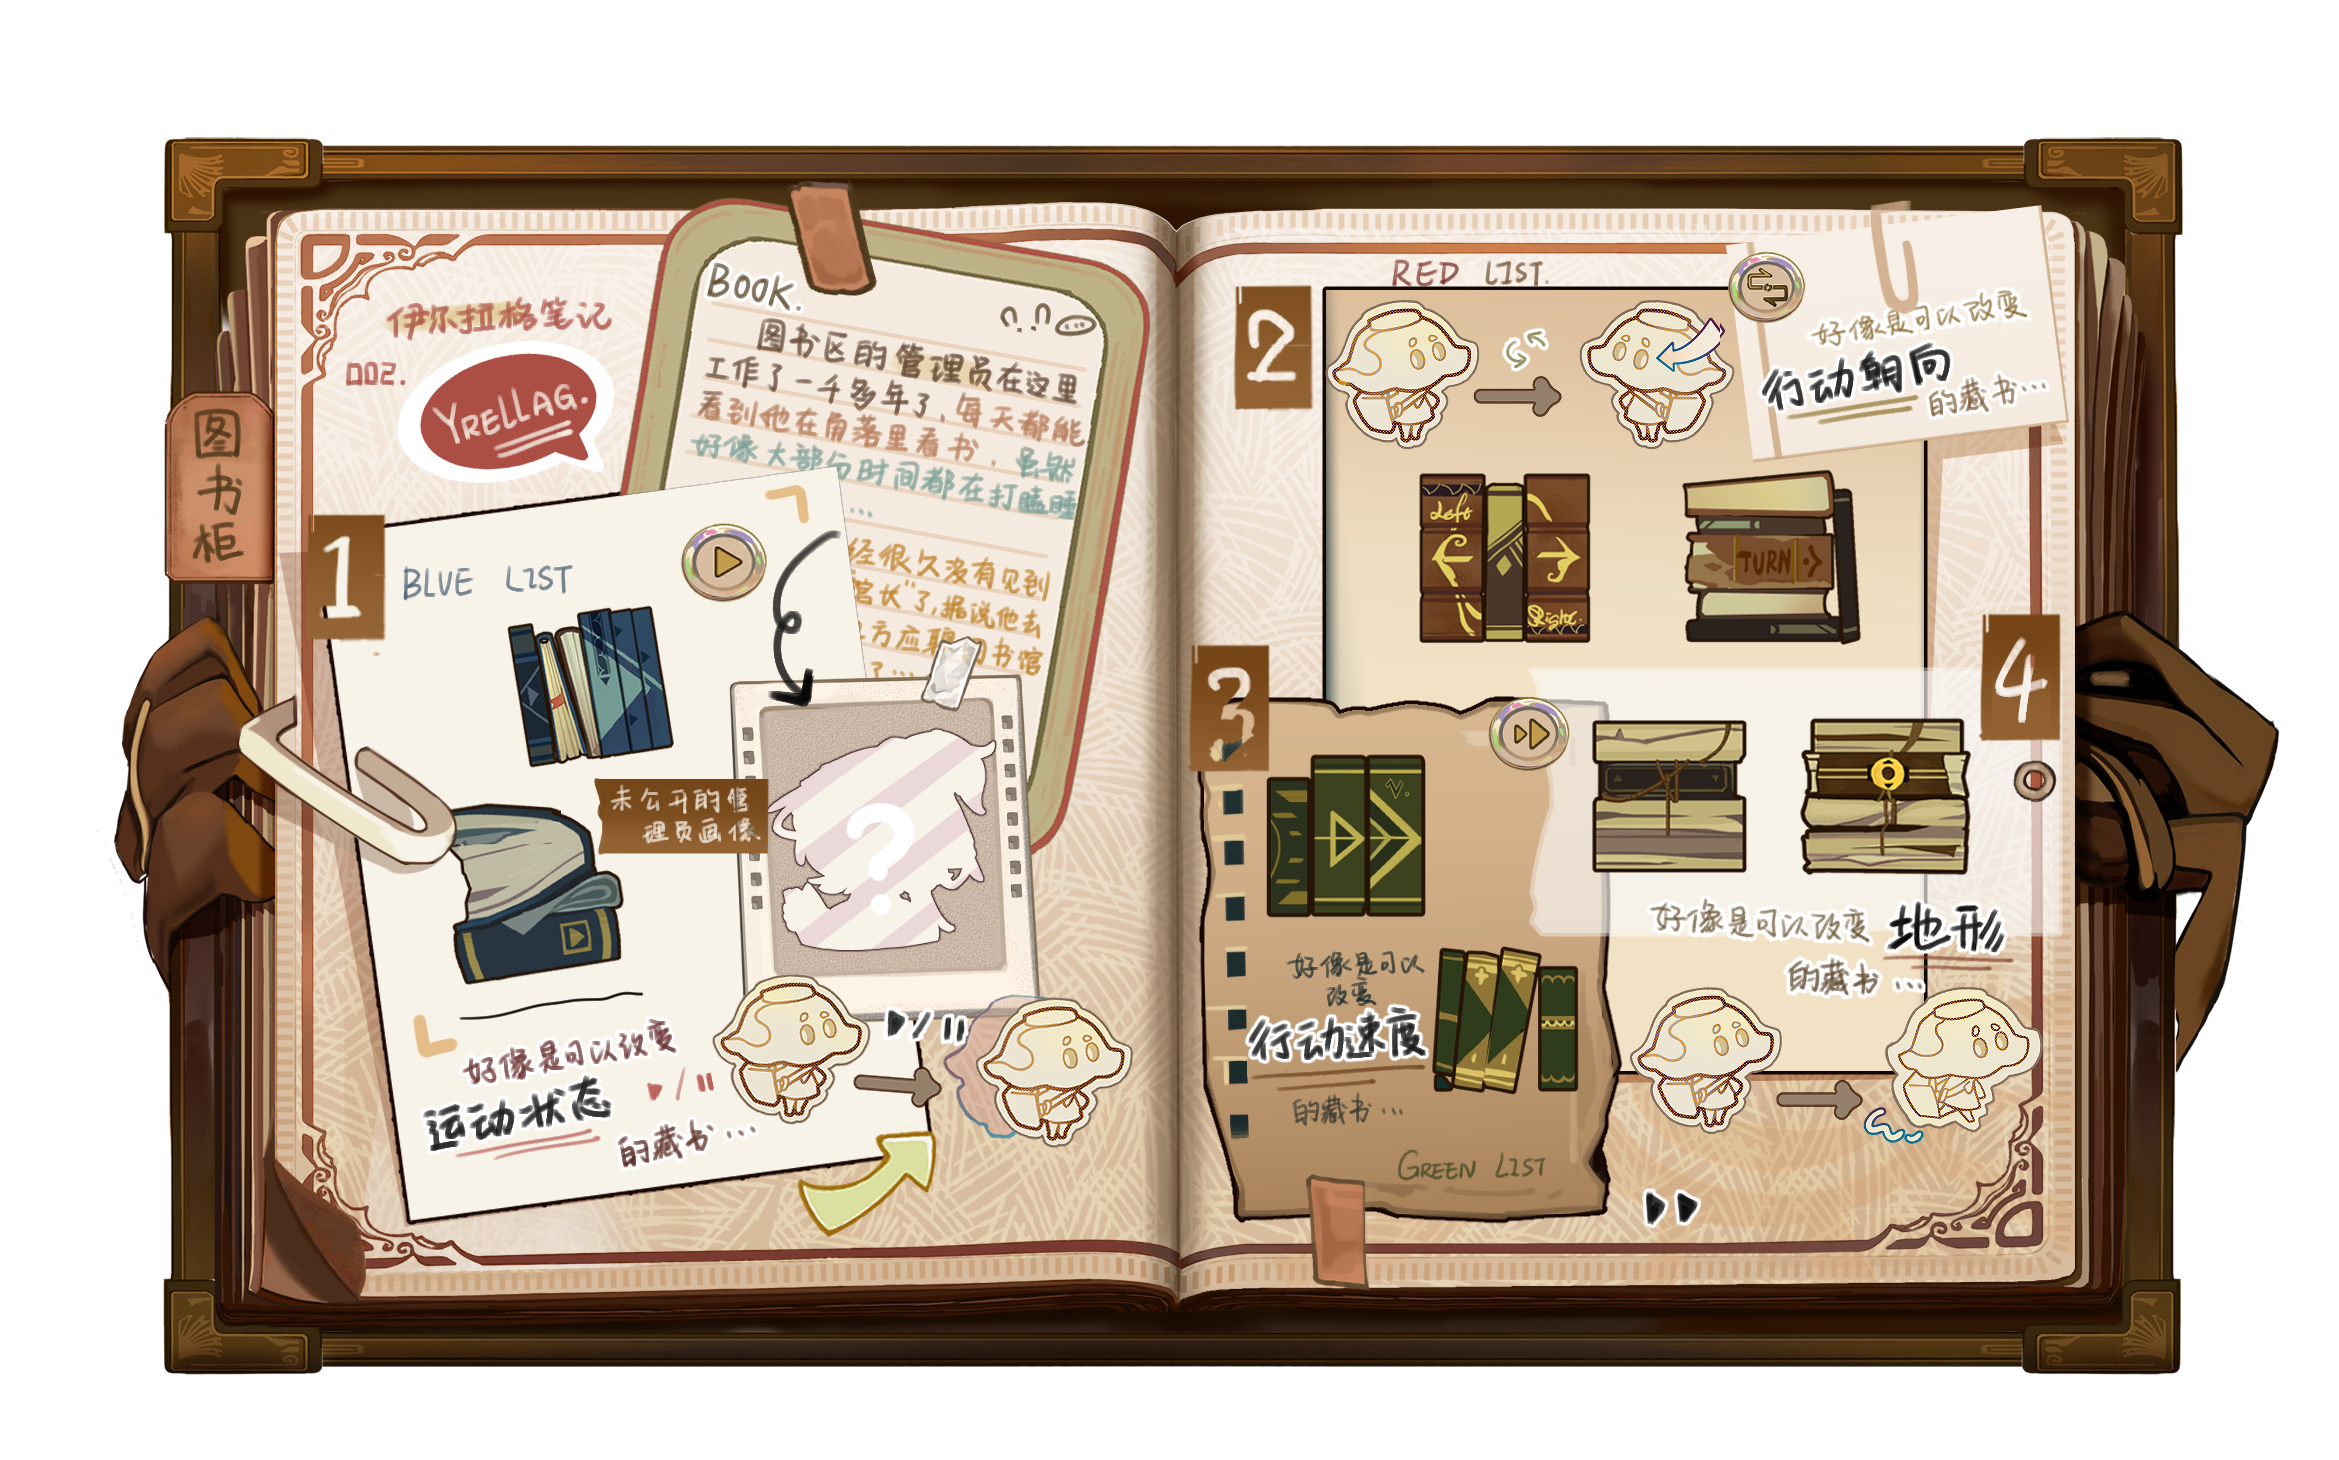 图书柜
伊尔拉格笔记
002.
YRELLAG.
BOOK.
图书区的管理员在这里
工作了一千多年了,每天都能
看到他在角落里看书,虽然
好像大部分时间都在打瞌睡
...
经很久没有见到
馆长"了,据说他去
方应聘 图书馆
了...
1
BLUE LIST
未公开的管
理员画像
?
好像是可以改变
运动状态
的藏书...
2
RED LIST.
好像是可以改变
行动朝向
的藏书...
Left
Right
TURN
3
V.
好像是可以
改变
行动速度
的藏书...
GREEN LIST
4
好像是可以改变 地形
的藏书...